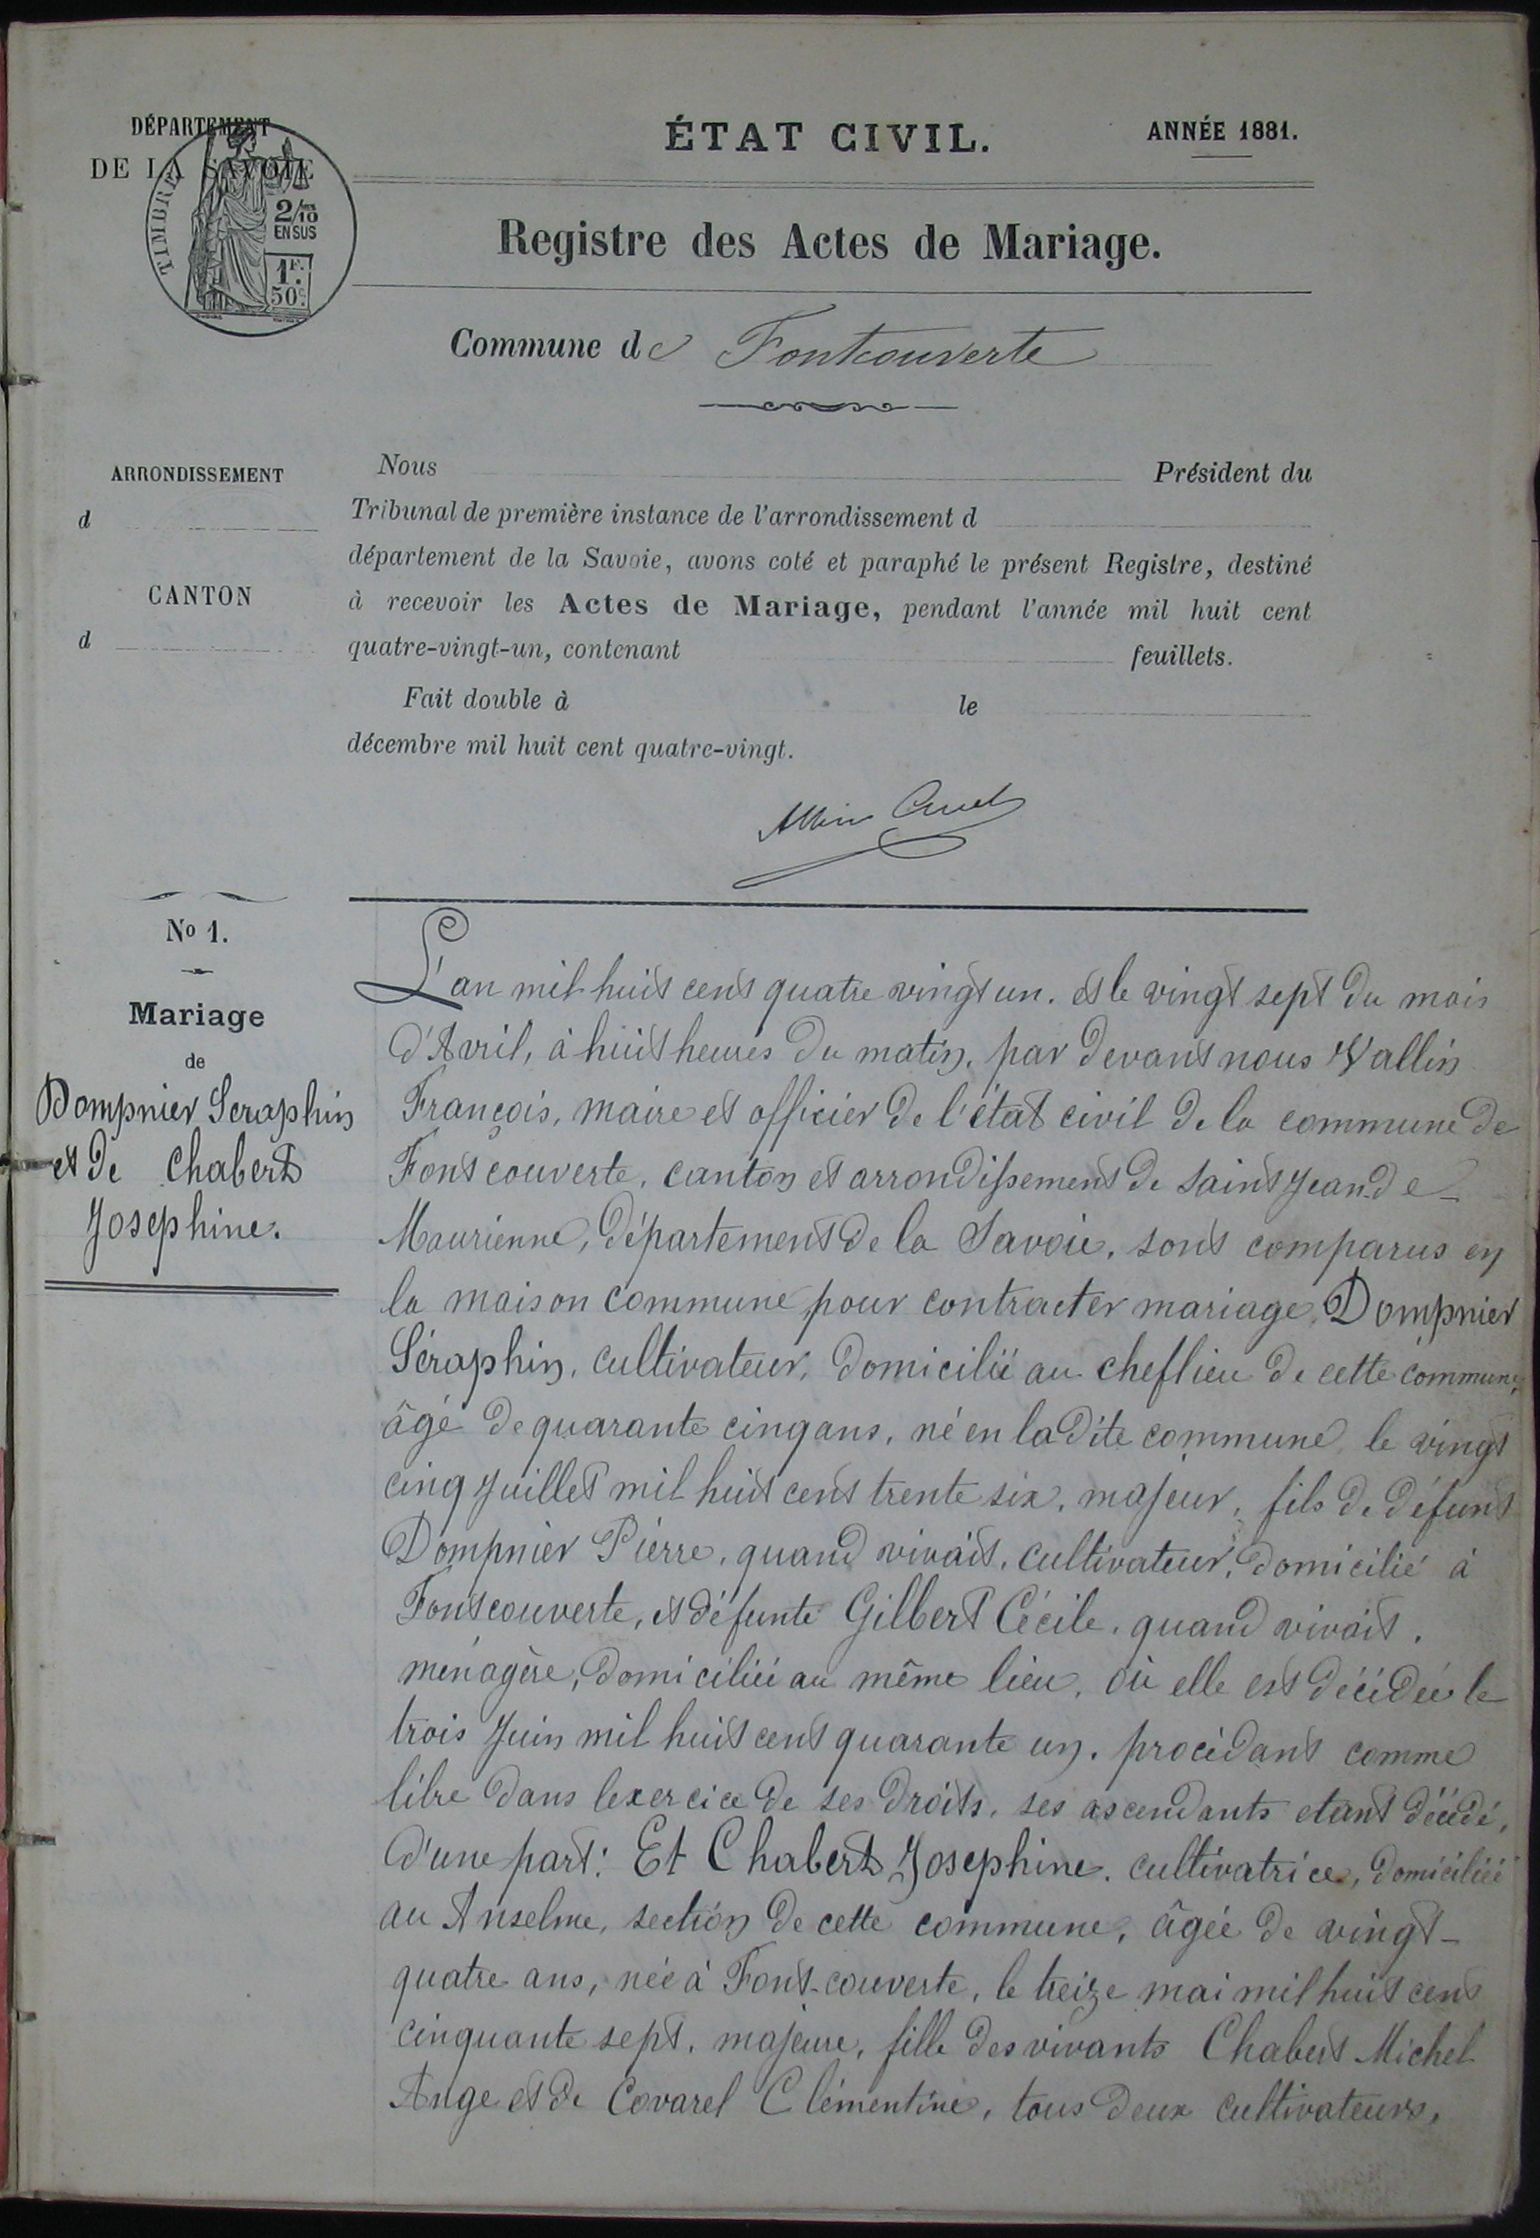 DÉPARTEMENT
DE LA SAVOIE
TIMBRE
2/10
EN SUS
1F.
50c.
ÉTAT CIVIL.
ANNÉE 1881.
Registre des Actes de Mariage.
Commune de Fontcouverte
ARRONDISSEMENT
d
CANTON
d
Nous Président du
Tribunal de première instance de l'arrondissement d
département de la Savoie, avons coté et paraphé le présent Registre, destiné
à recevoir les Actes de Mariage, pendant l'année mil huit cent
quatre-vingt-un, contenant feuillets.
Fait double à le
décembre mil huit cent quatre-vingt.
No 1.
Mariage
de
Dompnier Seraphin
et de Chabert
Josephine.
L'an mil huit cent quatre vingt un. et le vingt sept du mois
d'Avril, à huit heures du matin, par devant nous Vallin
François, maire et officier de l'état civil de la commune de
Font couverte, canton et arrondissement de Saint Jean de
Maurienne, département de la Savoie, sont comparus en
la maison commune pour contracter mariage, Dompnier
Séraphin, cultivateur, domicilié au cheflieu de cette commune,
âgé de quarante cinq ans, né en la dite commune le vingt
cinq Juillet mil huit cent trente six, majeur, fils de défunt
Dompnier Pierre, quand vivait, cultivateur, domicilié à
Font couverte, et défunte Gilbert Cécile, quand vivait,
ménagère, domiciliée au même lieu, où elle est décédée le
trois Juin mil huit cent quarante un. procédant comme
libre dans lexercice de ses droits, ses ascendants etant décédé,
d'une part: Et Chabert Josephine, cultivatrice, domiciliée
au Anselme, section de cette commune, âgée de vingt-
quatre ans, née à Font-couverte, le treize mai mil huit cent
cinquante sept, majeure, fille des vivants Chabert Michel
Ange et de Covarel Clémentine, tous deux cultivateurs,